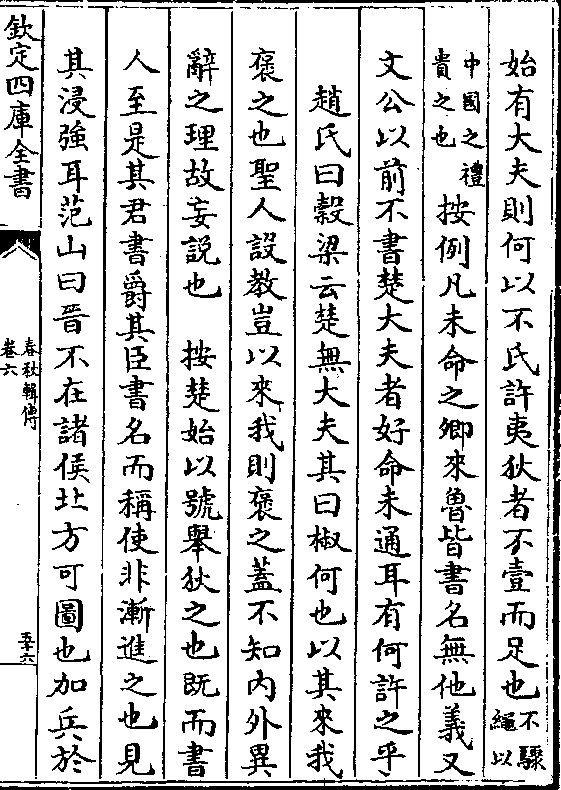 始有大夫則何以不氏許夷狄者不壹而足也不驟繩以
中國之禮貴之也按例凡未命之卿來魯皆書名無他義又
文公以前不書楚大夫者好命未通耳有何許之乎
趙氏曰榖梁云楚無大夫其曰椒何也以其來我
褒之也聖人設教豈以來我則褒之蓋不知內外異
辭之理故妄説也　按楚始以號舉狄之也既而書
人至是其君書爵其臣書名而稱使非漸進之也見
其浸強耳范山曰晉不在諸侯北方可圖也加兵於
欽定四庫全書
春秋輯傳
卷六
五十六